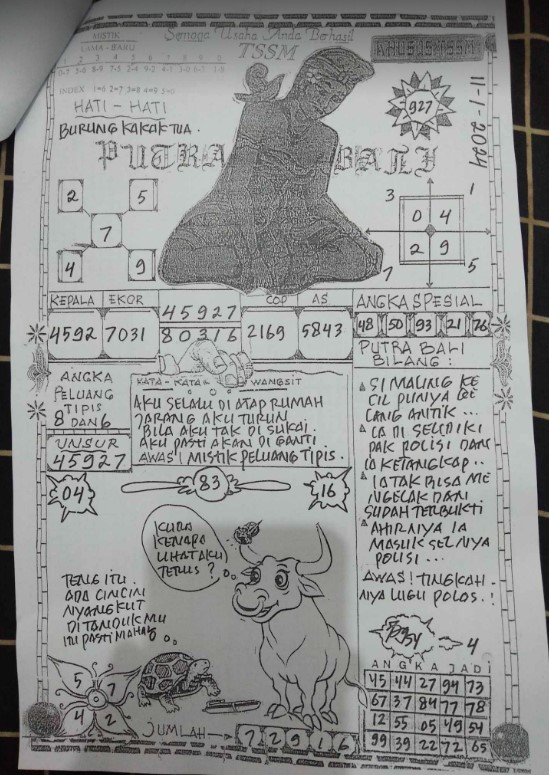 MISTIK
LAMA - BARU
Semoga Usaha Anda Berhasil
TSSM
KHUSUS TSSM
INDEX 1=6 2=7 3=8 4=9 5=0
HATI - HATI
BURUNG KAKAK TUA.
927
11-1-2024
PUTRA BALI
2 5
7
4 9
3 1
0 4
2 9
7 5
KEPALA EKOR COP AS
4592 7031 45927 2169 5843
80316
ANGKA SPESIAL
48 50 93 21 76
ANGKA
PELUANG
TIPIS
8 DAN 6
UNSUR
45927
KATA - KATA = WANGSIT
AKU SELALU DI ATAP RUMAH
JARANG AKU TURUN
BILA AKU TAK DI SUKAI.
AKU PASTI AKAN DI GANTI
AWAS! MISTIK PELUANG TIPIS.
04 83 16
PUTRA BALI
BILANG :
SI MALING KE
CIL PUNYA
LANG ANTIK ...
IA DI SELIDIKI
PAK POLISI DAN
IA KETANGKAP ..
IA TAK BISA ME
NGELAK DAN
SUDAH TERBUKTI
AHIRNYA IA
MASUK SEL NYA
POLISI ...
AWAS! TINGKAH -
NYA LUGU POLOS.!
KURA
KENAPA
LIHAT AKU
TERUS ?
TENG ITU.
ADA CINCIN
NYANGKUT
DI TANDUK MU
ITU PASTI MAHAL
5 7
4 2
JUMLAH
4
ANGKA JADI
45 44 27 94 73
67 37 84 77 78
12 55 05 49 54
99 39 22 72 65